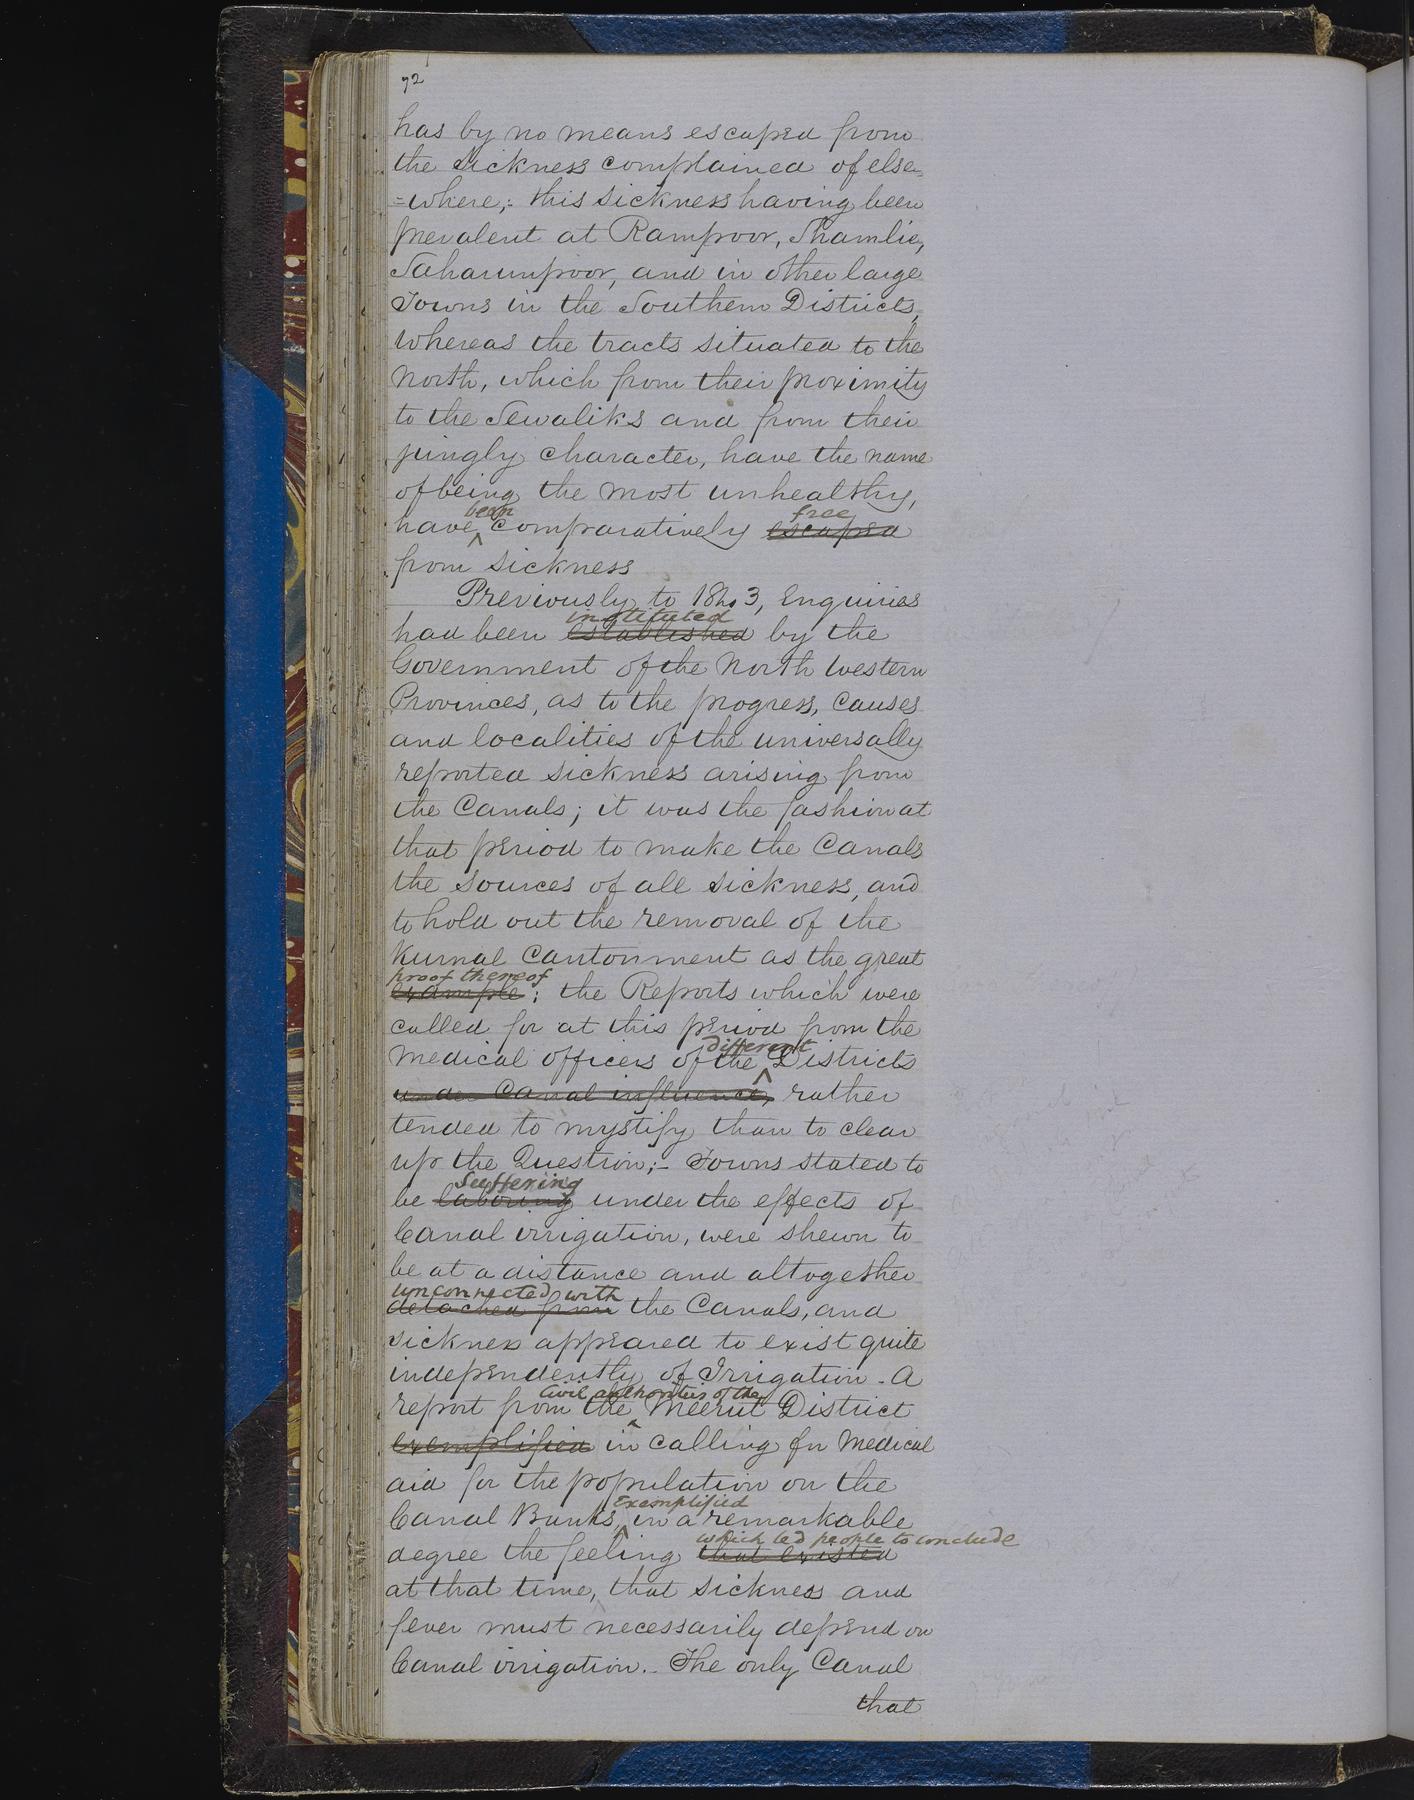 72
has by no means escaped from
the Sickness complained of else-
=where;- this sickness having been
prevalent at Rampoor, Shamlie,
Saharunpoor, and in other large
Towns in the Southern Districts,
whereas the tracts situated to the
North, which from their proximity
to the Sewaliks and from their
jungly character, have the name
of being the most unhealthy,
been free
have comparatively escaped
from sickness
Previously to 1843, Enquiries
instituted
had been established by the
Government of the North Western
Provinces, as to the progress, causes
and localities of the universally
reported sickness arising from
the Canals; it was the fashion at
that period to make the Canals
the sources of all sickness, and
to hold out the removal of the
Kurnal Cantonment as the great
proof thereof
example; the Reports which were
called for at this period from the
different
Medical officers of the Districts
under Canal influence, rather
tended to mystify than to clear
up the Question;- Towns stated to
Suffering
be laboring under the effects of
Canal irrigation, were shewn to
be at a distance and altogether
unconnected with
detached from the Canals, and
sickness appeared to exist quite
independently of Irrigation. A
Civil authorities of the
report from the Meerut District
exemplified in calling for Medical
aid for the population on the
Exemplified
Canal Banks, in a remarkable
which led people to conclude
degree the feeling that existed
at that time, that sickness and
fever must necessarily depend on
Canal irrigation.- The only Canal
that